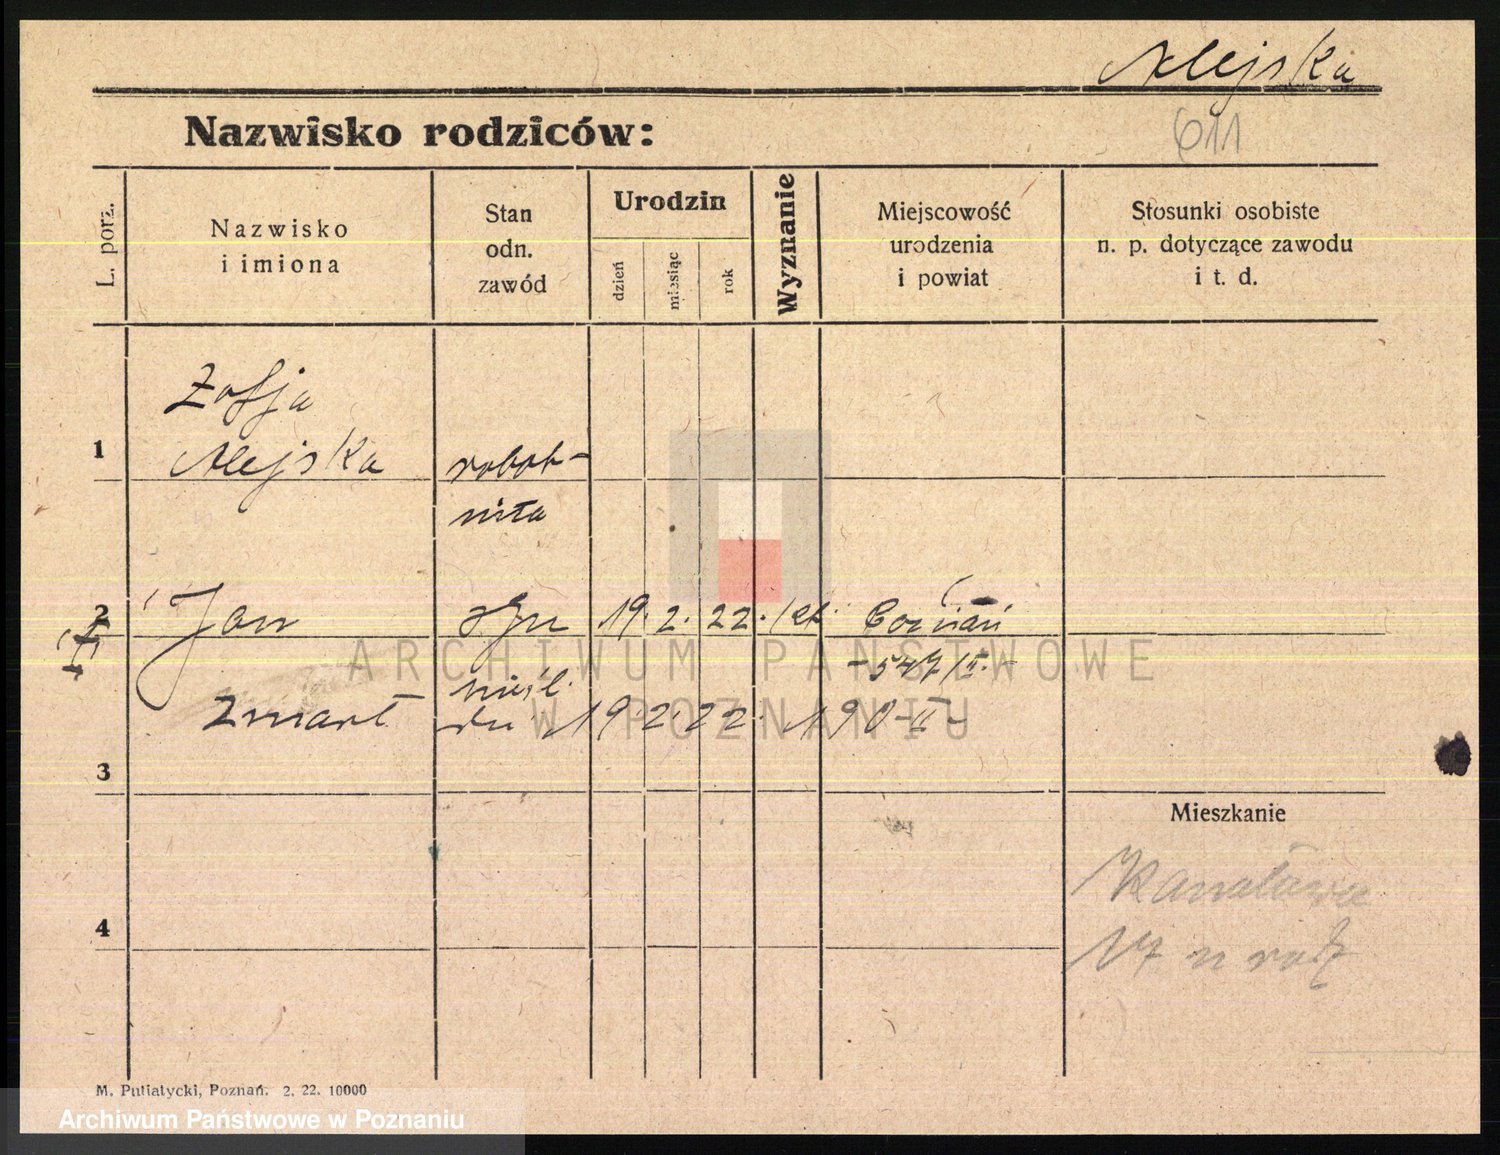 Alejska
611
Nazwisko rodziców:
L. porz.
Nazwisko
i imiona
Stan
odn.
zawód
Urodzin
dzień
miesiąc
rok
Wyznanie
Miejscowość
urodzenia
i powiat
Stosunki osobiste
n. p. dotyczące zawodu
i t. d.
Zofja
1 Alejska robot-
nica
2 Jan syn 19. 2. 22. kat. Poznań
nieśl. -547/II.-
Zmarł dn 19.2.22. 190-II-
3
Mieszkanie
4
17 u
M. Putiatycki, Poznań. 2. 22. 10000
ARCHIWUM PAŃSTWOWE
W POZNANIU
Archiwum Państwowe w Poznaniu